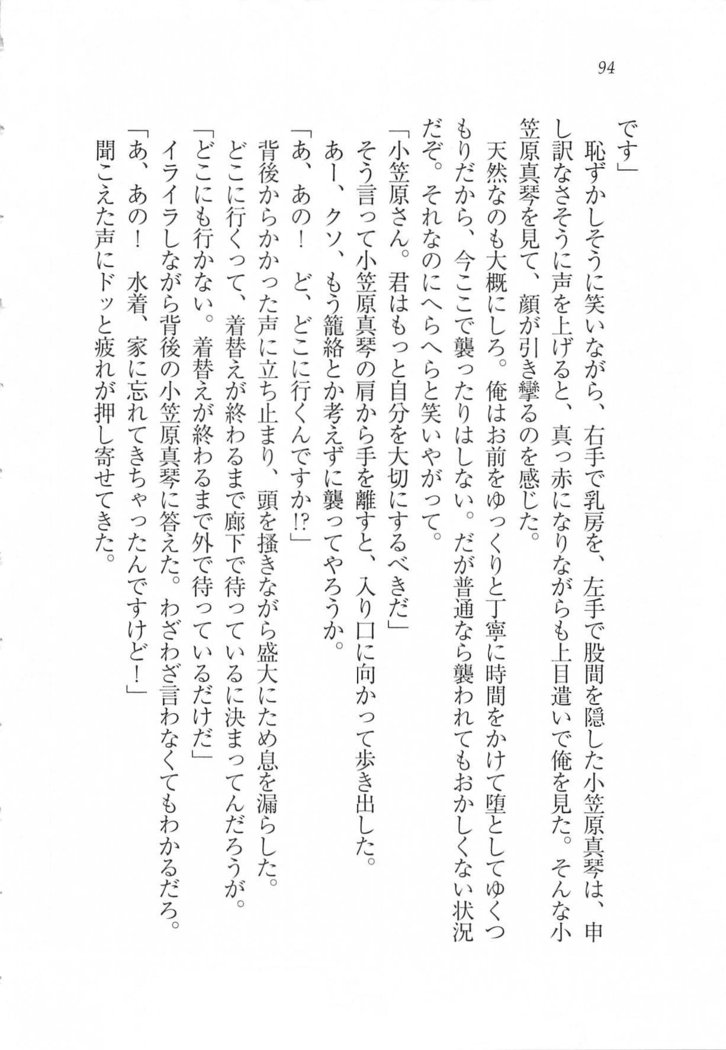 94
です」
　恥ずかしそうに笑いながら、右手で乳房を、左手で股間を隠した小笠原真琴は、申
し訳なさそうに声を上げると、真っ赤になりながらも上目遣いで俺を見た。そんな小
笠原真琴を見て、顔が引き攣るのを感じた。
　天然なのも大概にしろ。俺はお前をゆっくりと丁寧に時間をかけて堕としてゆくつ
もりだから、今ここで襲ったりはしない。だが普通なら襲われてもおかしくない状況
だぞ。それなのにへらへらと笑いやがって。
「小笠原さん。君はもっと自分を大切にするべきだ」
　そう言って小笠原真琴の肩から手を離すと、入り口に向かって歩き出した。
　あー、クソ、もう籠絡とか考えずに襲ってやろうか。
「あ、あの！　ど、どこに行くんですか!?」
　背後からかかった声に立ち止まり、頭を掻きながら盛大にため息を漏らした。
　どこに行くって、着替えが終わるまで廊下で待っているに決まってんだろうが。
「どこにも行かない。着替えが終わるまで外で待っているだけだ」
　イライラしながら背後の小笠原真琴に答えた。わざわざ言わなくてもわかるだろ。
「あ、あの！　水着、家に忘れてきちゃったんですけど！」
　聞こえた声にドッと疲れが押し寄せてきた。